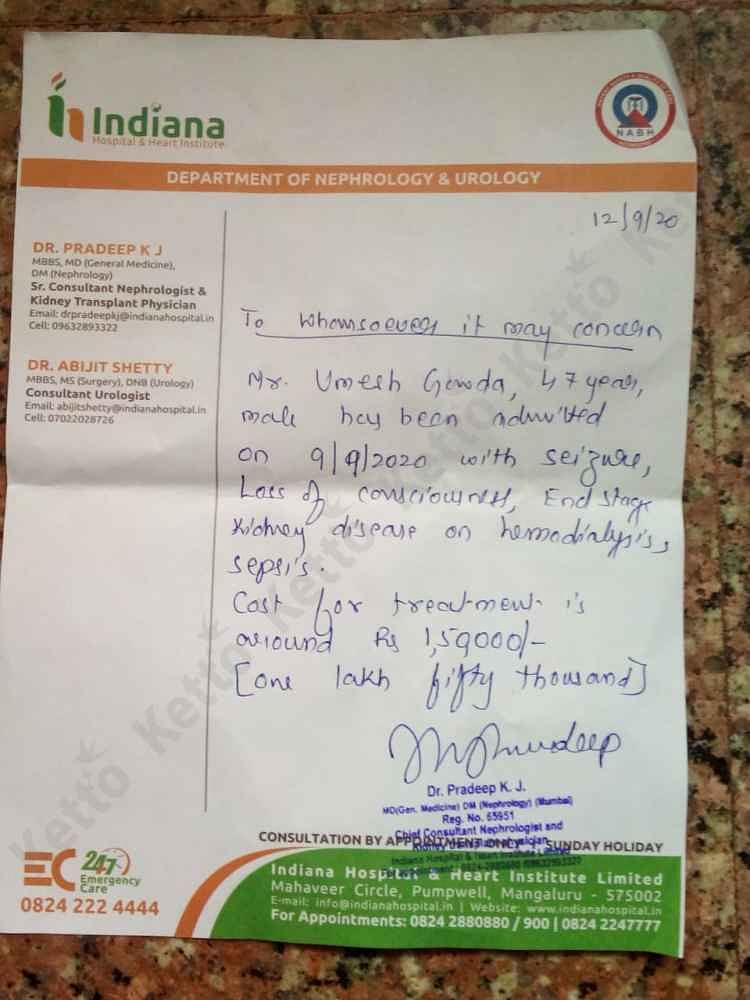 Indiana
Hospital & Heart Institute
NABH
DEPARTMENT OF NEPHROLOGY & UROLOGY
12/9/20
DR. PRADEEP K J
MBBS, MD (General Medicine),
DM (Nephrology)
Sr. Consultant Nephrologist &
Kidney Transplant Physician
Email: drpradeepkj@indianahospital.in
Cell: 09632893322
DR. ABIJIT SHETTY
MBBS, MS (Surgery), DNB (Urology)
Consultant Urologist
Email: abijitshetty@indianahospital.in
Cell: 07022028726
To whomsoever it may concern
Mr. Umesh Gowda, 47 years,
male has been admitted
on 9/9/2020 with seizure,
Loss of consciousness, End stage
Kidney disease on hemodialysis,
sepsis.
Cost for treatment is
around Rs 1,50000/-
[one lakh fifty thousand]
Dr. Pradeep K. J.
MD(Gen. Medicine) DM (Nephrology) (Mumbai)
Reg. No. 65951
Chief Consultant Nephrologist and
CONSULTATION BY APPOINTMENT ONLY SUNDAY HOLIDAY
EC 24x7
Emergency
Care
0824 222 4444
Indiana Hospital & Heart Institute Limited
Mahaveer Circle, Pumpwell, Mangaluru - 575002
E-mail: info@indianahospital.in | Website: www.indianahospital.in
For Appointments: 0824 2880880 / 900 | 0824 2247777
Ketto Ketto Ketto Ketto Ketto